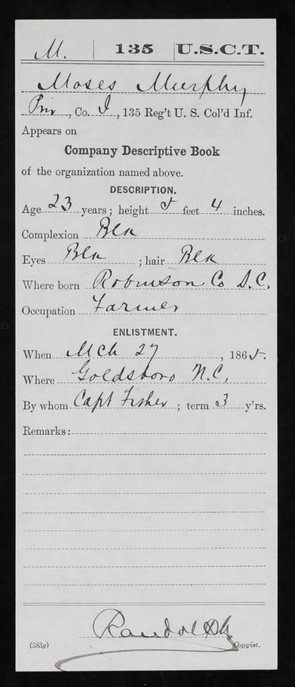 M. | 135 | U.S.C.T.
Moses Murphy
Pvt., Co. I, 135 Reg't U. S. Col'd Inf.
Appears on
Company Descriptive Book
of the organization named above.
DESCRIPTION.
Age 23 years; height 5 feet 4 inches.
Complexion Blk
Eyes Blk ; hair Blk
Where born Robinson Co S.C.
Occupation Farmer
ENLISTMENT.
When Mch 27, 1865.
Where Goldsboro N.C.
By whom Capt Fisher ; term 3 y'rs.
Remarks:
Randolph
(383g) Copyist.